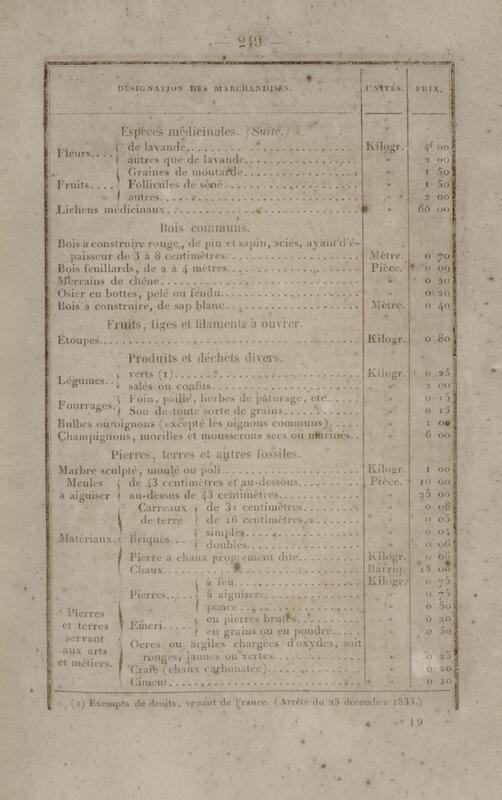 — 249 —
DÉSIGNATION DES MARCHANDISES. UNITÉS. PRIX.
Espèces médicinales. (Suite.)
Fleurs.... { de lavande.......... Kilogr. 4f 00
autres que de lavande.......... " 2 00
Fruits.... { Graines de moutarde.......... " 1 50
Follicules de séné.......... " 1 50
autres.......... " 2 00
Lichens médicinaux.......... " 60 00
Bois communs.
Bois à construire rouge, de pin et sapin, sciés, ayant d'é-
paisseur de 3 à 8 centimètres.......... Mètre. 0 70
Bois feuillards, de 2 à 4 mètres.......... Pièce. 0 09
Merrains de chêne.......... " 0 20
Osier en bottes, pelé ou fendu.......... " 0 20
Bois à construire, de sap blanc.......... Mètre. 0 40
Fruits, tiges et filaments à ouvrer.
Étoupes.......... Kilogr. 0 80
Produits et déchets divers.
Légumes.. { verts (1).......... Kilogr. 0 25
salés ou confits.......... " 2 00
Fourrages. { Foin, paille, herbes de pâturage, etc..... " 0 15
Son de toute sorte de grains.......... " 0 15
Bulbes ou oignons (excepté les oignons communs). " 1 00
Champignons, morilles et mousserons secs ou marinés.. " 6 00
Pierres, terres et autres fossiles.
Marbre sculpté, moulé ou poli.......... Kilogr. 1 00
Meules { de 43 centimètres et au-dessous.......... Pièce. 10 00
à aiguiser { au-dessus de 43 centimètres.......... " 25 00
Carreaux { de 31 centimètres.......... " 0 08
de terre { de 16 centimètres.......... " 0 05
Matériaux. { Briques.... { simples.......... " 0 04
doubles.......... " 0 06
Pierre à chaux proprement dite.......... Kilogr. 0 06
Chaux.......... Barriq. 18 00
à feu.......... Kilogr. 0 75
Pierres..... { à aiguiser.......... " 0 75
ponce.......... " 0 50
Pierres et terres servant aux arts et métiers. { Émeri.... { en pierres brutes.......... " 0 20
en grains ou en poudre..... " 0 50
Ocres ou argiles chargées d'oxydes, soit
rouges, jaunes ou vertes.......... " 0 25
Craie (chaux carbonatée).......... " 0 20
Ciment.......... " 0 20
(1) Exempts de droits, venant de France. (Arrêté du 28 décembre 1833.)
19